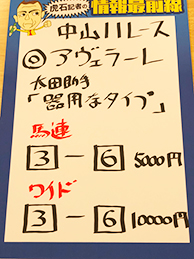 虎石記者の
情報最前線
中山11レース
◎アヴェラーレ
太田助手
「器用なタイプ」
馬連
3－6 5000円
ワイド
3－6 10000円